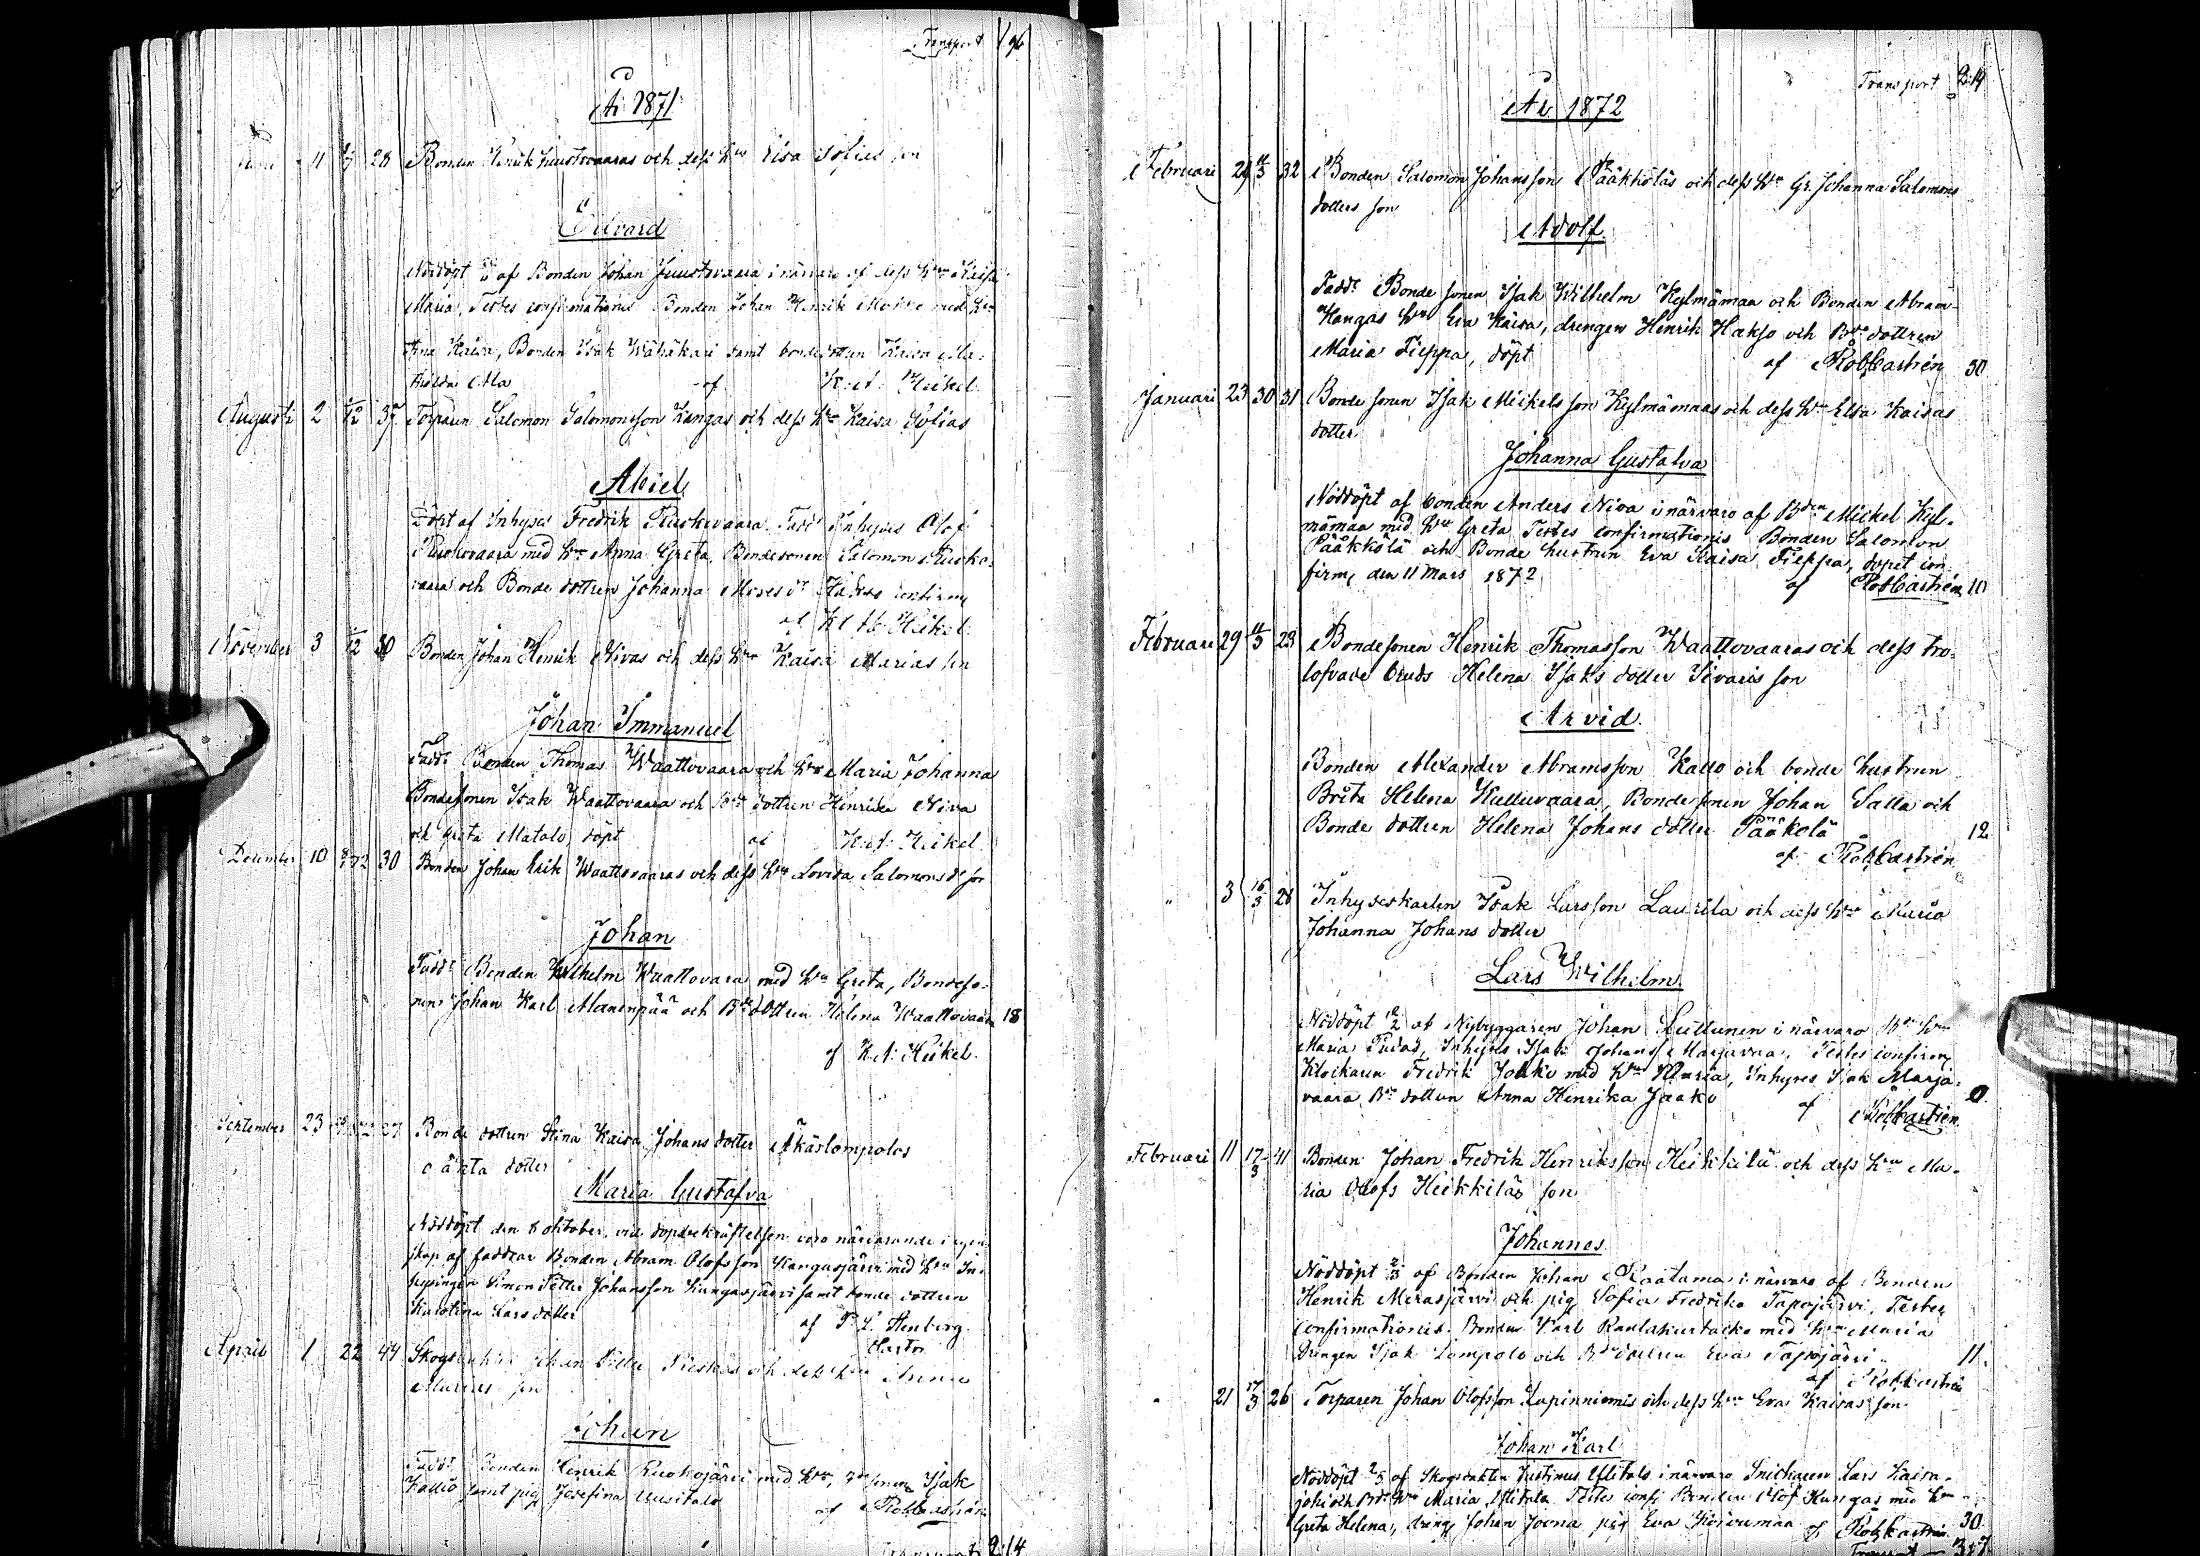 Transport 1 96
År 1871
Juni 11 28 Bonden Henrik Juustovaaras och dess hru Elsa Sofias son
Edvard
Nöddöpt af Bonden Johan Juustovaara i närvaro af dess hru Kaisa
Maria, Testes confirmationis Bonden Johan Henrik med hru
Stina Kaisa, Bonden Isak Wähäkari samt bondedottren Kaisa Ma-
thilda Ala af K.A. Heikel
Augusti 2 1/12 37 Torparen Salomon Salomonsson Kangas och dess hru Kaisa Sofias
Abiel
Döpt af Inhyses Fredrik Ruokovaara. Fadd: Inhyses Olof
Ruokovaara med hru Anna Greta, Bondesonen Salomon Ruoko-
vaara och Bonde dottren Johanna Moses dr confirm
af K.A. Heikel
November 3 1/12 30 Bonden Johan Henrik Nivas och dess hru Kaisa Marias son
Johan Immanuel
Fadd: Bonden Thomas Waattovaara och hru Maria Johanna
Bondesonen Isak Waattovaara och Bde dottren Henrika Niva
och Greta Matalo, döpt af K.A. Heikel
December 10 30 Bonden Johan Erik Waattovaaras och dess hru Lovisa Salomons dr son
Johan
Fadd: Bonden Wilhelm Waattovara med hru Greta, Bondeso-
nen Johan Karl Manenpää och Bde dottren Helena Waattovaara 18
af K.A. Heikel
September 23 27 Bonde dottren Stina Kaisa Johans dotter Äkäslompolos
oäkta dotter
Maria Gustafva
Nöddöpt den 8 oktober, vid dopbekräftelsen voro närvarande i egen-
skap af faddrar Bonden Abram Olofsson Kangasjärvi med hru In-
hysingen Simon Petter Johansson Kangasjärvi samt bonde dottren
Karolina Lars dotter af P. L. Stenborg
Pastor
April 1 22 44 Johan Petter och dess hru Anna
Marias son
Johan
Fadd: Bonden Henrik Ruokojärvi med hru, Isak
Kallo samt pig Josefina Uusitalo
af Rob Castrén
Transport 2:14

Transport 2:14
År 1872
Februari 29 11/3 32 Bonden Salomon Johansson Pääkköläs och dess hru Gr. Johanna Salomons
dotters son
Adolf
Fadd: Bonde sonen Isak Wilhelm Kylmämaa och Bonden Abram
Kangas hru Eva Kaisa, drengen Henrik Hakso och Bde dottren
Maria Fieppa, döpt
af Rob Castrén 30
Januari 23 30 31 Bonde sonen Isak Mickelsson Kylmämaas och dess hru Elsa Kaisas
dotter
Johanna Gustafva
Nöddöpt af bonden Anders Niva i närvaro af Bden Mickel Kyl-
mämaa med hru Greta Testes confirmationis Bonden Salomon
Pääkkölä och Bonde hustrun Eva Kaisa Fieppa, dopet con-
firm, den 11 Mars 1872
af Rob Castrén 10
Februari 29 11/3 23 Bondesonen Henrik Thomasson Waattovaaras och dess tro-
lofvade bruds Helena Isaks dotter Sivaris son
Arvid
Bonden Alexander Abramsson Kallo och bonde hustrun
Brita Helena Kulluvaara, Bonde sonen Johan Salla och
Bonde dottren Helena Johans dotter Pääkölä 12
af Rob Castrén
" 3 16/3 28 Inhyseskarlen Isak Larsson Laurila och dess hru Maria
Johanna Johans dotter
Lars Wilhelm
Nöddöpt af Nybyggaren Johan Kuttunen i närvaro
Maria Pudas, Inhyses Isak Johans Marjavaa, Testes confirm
Klockaren Fredrik Jaako med hru Maria, Inhyses Isak Marja-
vaara Bde dottren Anna Henrika Jaako 0
af Rob Castrén
Februari 11 17/3 41 Bonden Johan Fredrik Henriksson Heikkilä och dess hru Ma-
ria Olofs Heikkiläs son
Johannes
Nöddöpt 2/3 af Bonden Johan Raatama i närvaro af Bonden
Henrik Merasjärvi och pig Sofia Fredrika Tapojärvi, Testes
confirmationis Bonden Karl Rautakurtacko med hru Maria
Drengen Isak Lompolo och Bde dottren Eva Tapojärvi 11.
af Rob Castrén
" 21 17/3 26 Torparen Johan Olofsson Lapinniemis och dess hru Eva Kaisas son
Johan Karl
Nöddöpt af Skogsvakten Justinus Ylitalo i närvaro Snickaren Lars Kaira-
joki och Bde hru Maria Ylitalo Testes conf Bonden Olof Kangas med hru
Greta Helena, dreng Johan Jovna pig Eva af Rob Castrén 30
Transport 3:7